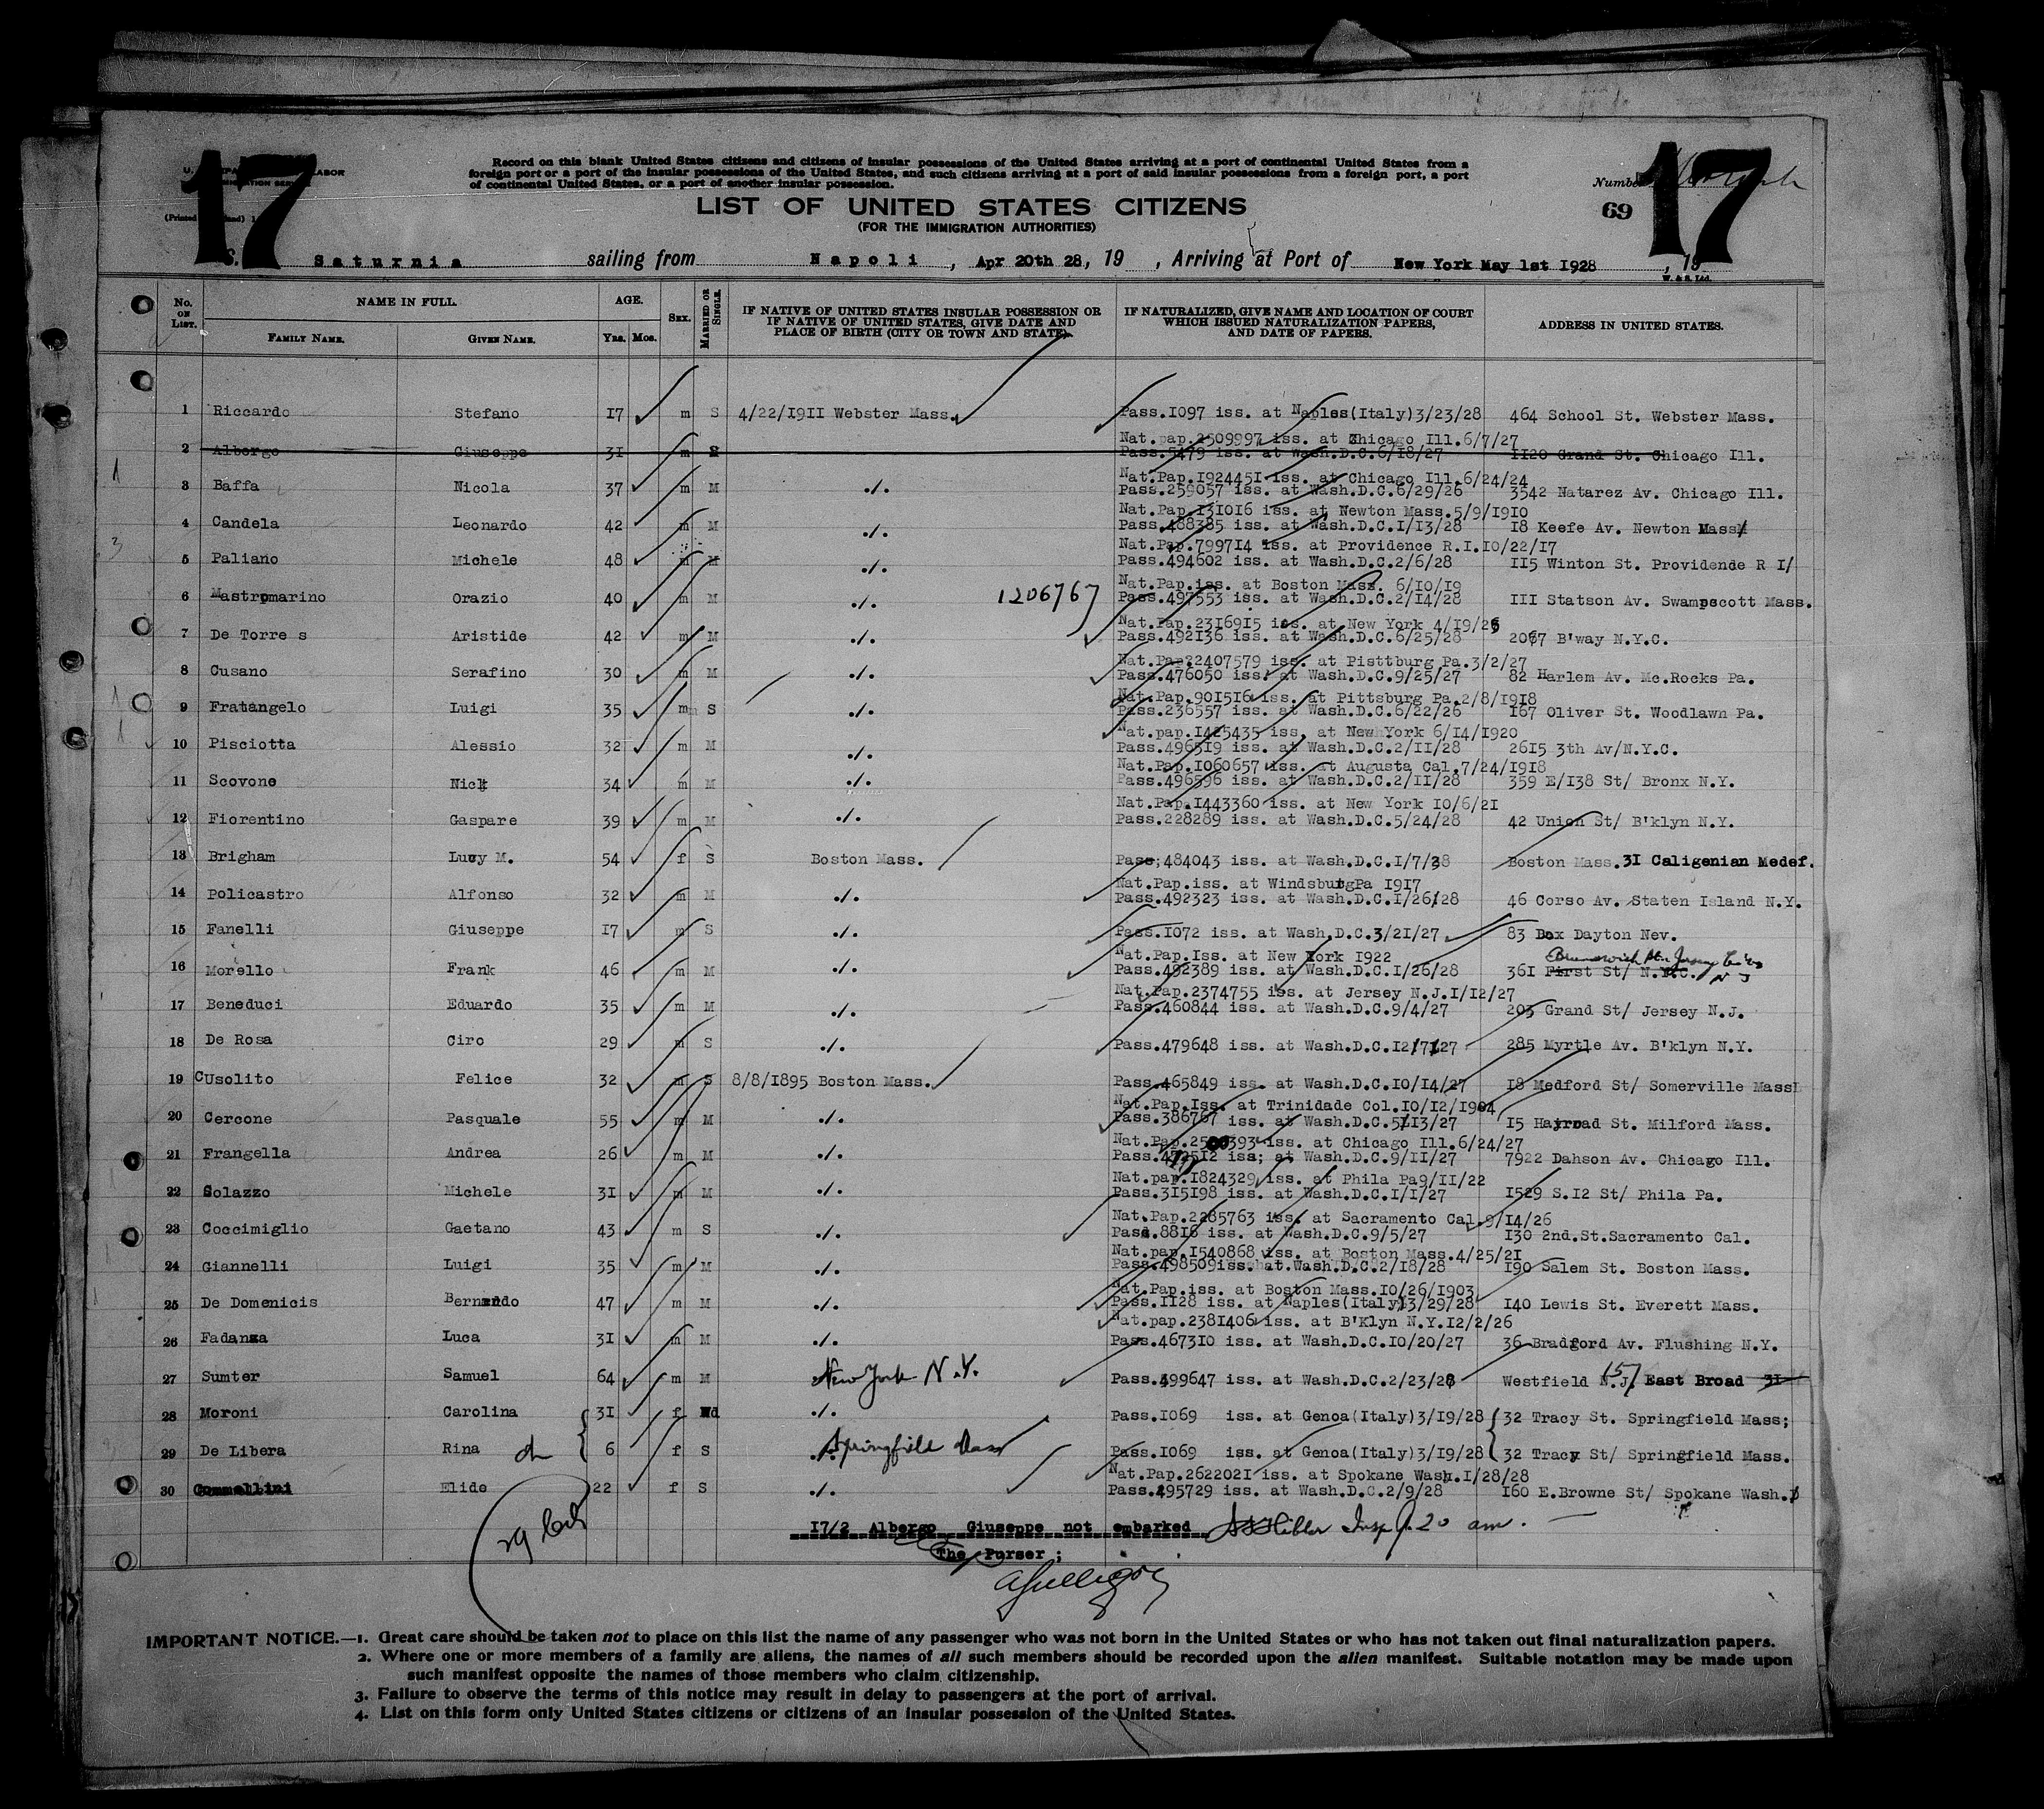 17
17
U. S. DEPARTMENT OF LABOR
IMMIGRATION SERVICE
Record on this blank United States citizens and citizens of insular possessions of the United States arriving at a port of continental United States from a
foreign port or a port of the insular possessions of the United States, and such citizens arriving at a port of said insular possessions from a foreign port, a port
of continental United States, or a port of another insular possession.
Number
69
LIST OF UNITED STATES CITIZENS
(FOR THE IMMIGRATION AUTHORITIES)
S. Saturnia sailing from Napoli, Apr 20th 28, 19 , Arriving at Port of New York May 1st 1928, 19
W. & S. Ltd.
No. ON LIST. NAME IN FULL. AGE. SEX. MARRIED OR SINGLE. IF NATIVE OF UNITED STATES INSULAR POSSESSION OR IF NATIVE OF UNITED STATES, GIVE DATE AND PLACE OF BIRTH (CITY OR TOWN AND STATE). IF NATURALIZED, GIVE NAME AND LOCATION OF COURT WHICH ISSUED NATURALIZATION PAPERS, AND DATE OF PAPERS. ADDRESS IN UNITED STATES.
FAMILY NAME. GIVEN NAME. Yrs. Mos.
1 Riccardo Stefano 17 m S 4/22/1911 Webster Mass. Pass.1097 iss. at Naples(Italy)3/23/28 464 School St. Webster Mass.
Nat.pap.2509997 iss. at Chicago Ill.6/7/27
2 Albergo Giuseppe 31 m S Pass.5479 iss. at Wash.D.C.6/18/27 1120 Grand St. Chicago Ill.
Nat.Pap.1924451 iss. at Chicago Ill.6/24/24
3 Baffa Nicola 37 m M ./. Pass.259057 iss. at Wash.D.C.6/29/26 3542 Natarez Av. Chicago Ill.
Nat.Pap.131016 iss. at Newton Mass.5/9/1910
4 Candela Leonardo 42 m M ./. Pass.488385 iss. at Wash.D.C.1/13/28 18 Keefe Av. Newton Mass/
Nat.Pap.799714 iss. at Providence R.I.10/22/17
5 Paliano Michele 48 m M ./. Pass.494602 iss. at Wash.D.C.2/6/28 115 Winton St. Providende R I/
Nat.Pap.iss. at Boston Mass. 6/10/19
6 Mastromarino Orazio 40 m M ./. 1206767 Pass.497553 iss. at Wash.D.C.2/14/28 111 Statson Av. Swampscott Mass.
Nat.Pap.2316915 iss. at New York 4/19/26
7 De Torre s Aristide 42 m M ./. Pass.492136 iss. at Wash.D.C.6/25/28 2067 B'way N.Y.C.
Nat.Pap.2407579 iss. at Pisttburg Pa.3/2/27
8 Cusano Serafino 30 m M ./. Pass.476050 iss. at Wash.D.C.9/25/27 82 Harlem Av. Mc.Rocks Pa.
Nat.Pap.901516 iss. at Pittsburg Pa.2/8/1918
9 Fratangelo Luigi 35 m S ./. Pass.236557 iss. at Wash.D.C.6/22/26 167 Oliver St. Woodlawn Pa.
Nat.pap.1425435 iss. at New York 6/14/1920
10 Pisciotta Alessio 32 m M ./. Pass.496519 iss. at Wash.D.C.2/11/28 2615 3th Av/N.Y.C.
Nat.Pap.1060657 iss. at Augusta Cal.7/24/1918
11 Scovone Nick 34 m M ./. Pass.496596 iss. at Wash.D.C.2/11/28 359 E/138 St/ Bronx N.Y.
Nat.Pap.1443360 iss. at New York 10/6/21
12 Fiorentino Gaspare 39 m M ./. Pass.228289 iss. at Wash.D.C.5/24/28 42 Union St/ B'klyn N.Y.
13 Brigham Lucy M. 54 f S Boston Mass. Pass;484043 iss. at Wash.D.C.1/7/28 Boston Mass.31 Caligenian Medef.
Nat.Pap.iss. at WindsburgPa 1917
14 Policastro Alfonso 32 m M ./. Pass.492323 iss. at Wash.D.C.1/26/28 46 Corso Av. Staten Island N.Y.
15 Fanelli Giuseppe 17 m S ./. Pass.1072 iss. at Wash.D.C.3/21/27 83 Box Dayton Nev.
Nat.Pap.Iss. at New York 1922 Brunswich St. Jersey City
16 Morello Frank 46 m M ./. Pass.492389 iss. at Wash.D.C.1/26/28 361 First St/ N.Y.C. N J
Nat.Pap.2374755 iss. at Jersey N.J.1/12/27
17 Beneduci Eduardo 35 m M ./. Pass.460844 iss. at Wash.D.C.9/4/27 203 Grand St/ Jersey N.J.
18 De Rosa Ciro 29 m S ./. Pass.479648 iss. at Wash.D.C.12/7/27 285 Myrtle Av. B'klyn N.Y.
19 CUsolito Felice 32 m S 8/8/1895 Boston Mass. Pass.465849 iss. at Wash.D.C.10/14/27 18 Medford St/ Somerville Mass
Nat.Pap.Iss. at Trinidade Col.10/12/1904
20 Cercone Pasquale 55 m M ./. Pass.386767 iss. at Wash.D.C.5/13/27 15 Hayroad St. Milford Mass.
Nat.Pap.2500393 iss. at Chicago Ill.6/24/27
21 Frangella Andrea 26 m M ./. Pass.472512 iss; at Wash.D.C.9/11/27 7922 Dahson Av. Chicago Ill.
Nat.pap.1824329 iss. at Phila Pa9/11/22
22 Solazzo Michele 31 m M ./. Pass.315198 iss. at Wash.D.C.1/1/27 1529 S.12 St/ Phila Pa.
Nat.Pap.2285763 iss. at Sacramento Cal.9/14/26
23 Coccimiglio Gaetano 43 m S ./. Pass.8816 iss. at Wash.D.C.9/5/27 130 2nd.St.Sacramento Cal.
Nat.pap.1540868 iss. at Boston Mass.4/25/21
24 Giannelli Luigi 35 m M ./. Pass.498509iss. at.Wash.D.C.2/18/28 190 Salem St. Boston Mass.
Nat.Pap.iss. at Boston Mass.10/26/1903
25 De Domenicis Bernardo 47 m M ./. Pass.1128 iss. at Naples(Italy)3/29/28 140 Lewis St. Everett Mass.
Nat.pap.2381406 iss. at B'Klyn N.Y.12/2/26
26 Fadanza Luca 31 m M ./. Pass.467310 iss. at Wash.D.C.10/20/27 36 Bradford Av. Flushing N.Y.
27 Sumter Samuel 64 m M New York N.Y. Pass.499647 iss. at Wash.D.C.2/23/28 Westfield N.J. 157 East Broad 31
28 Moroni Carolina 31 f Wd ./. Pass.1069 iss. at Genoa(Italy)3/19/28 32 Tracy St. Springfield Mass;
29 De Libera Rina ch 6 f S Springfield Mass Pass.1069 iss. at Genoa(Italy)3/19/28 32 Tracy St/ Springfield Mass.
Nat.Pap.2622021 iss. at Spokane Wash.1/28/28
30 Elide 22 f S ./. Pass.495729 iss. at Wash.D.C.2/9/28 160 E.Browne St/ Spokane Wash.
17/2 Albergo Giuseppe not embarked Insp 9.20 am.
29
The Purser;
IMPORTANT NOTICE.—1. Great care should be taken not to place on this list the name of any passenger who was not born in the United States or who has not taken out final naturalization papers.
2. Where one or more members of a family are aliens, the names of all such members should be recorded upon the alien manifest. Suitable notation may be made upon
such manifest opposite the names of those members who claim citizenship.
3. Failure to observe the terms of this notice may result in delay to passengers at the port of arrival.
4. List on this form only United States citizens or citizens of an insular possession of the United States.